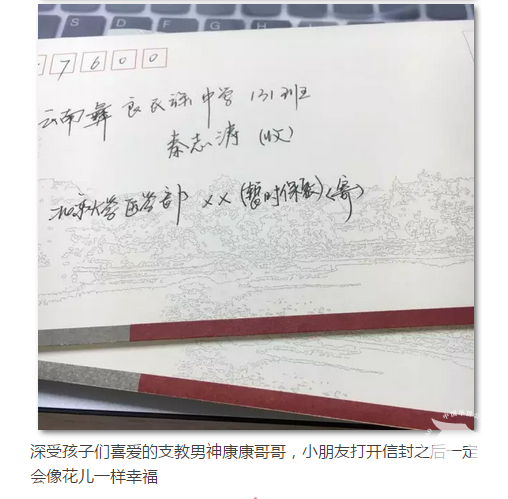 7600
云南彝良民族中学 131班
秦志涛 (收)
北京大学医学部 XX (暂时保密)(寄)
深受孩子们喜爱的支教男神康康哥哥，小朋友打开信封之后一定
会像花儿一样幸福